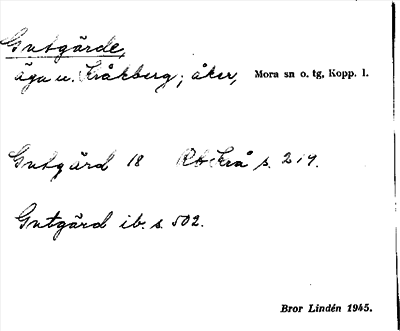 Gutgärde,
äga u. Kråkberg; åker, Mora sn o. tg, Kopp. l.
Gutgärd 18 Rb Krå s. 214.
Gutgärd ib. s. 502.
Bror Lindén 1945.